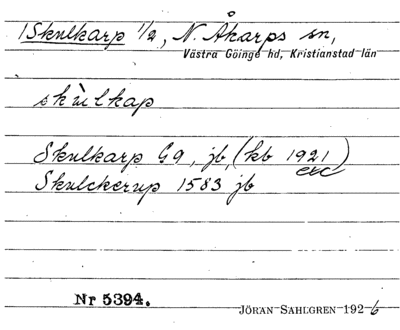 1 Skulkarp 1/2, N. Åkarps sn,
Västra Göinge hd, Kristianstad län
skùlkap
Skulkarp G9, jb, (kb 1921)
etc
Skulckerup 1583 jb
Nr 5394.
JÖRAN SAHLGREN 1926